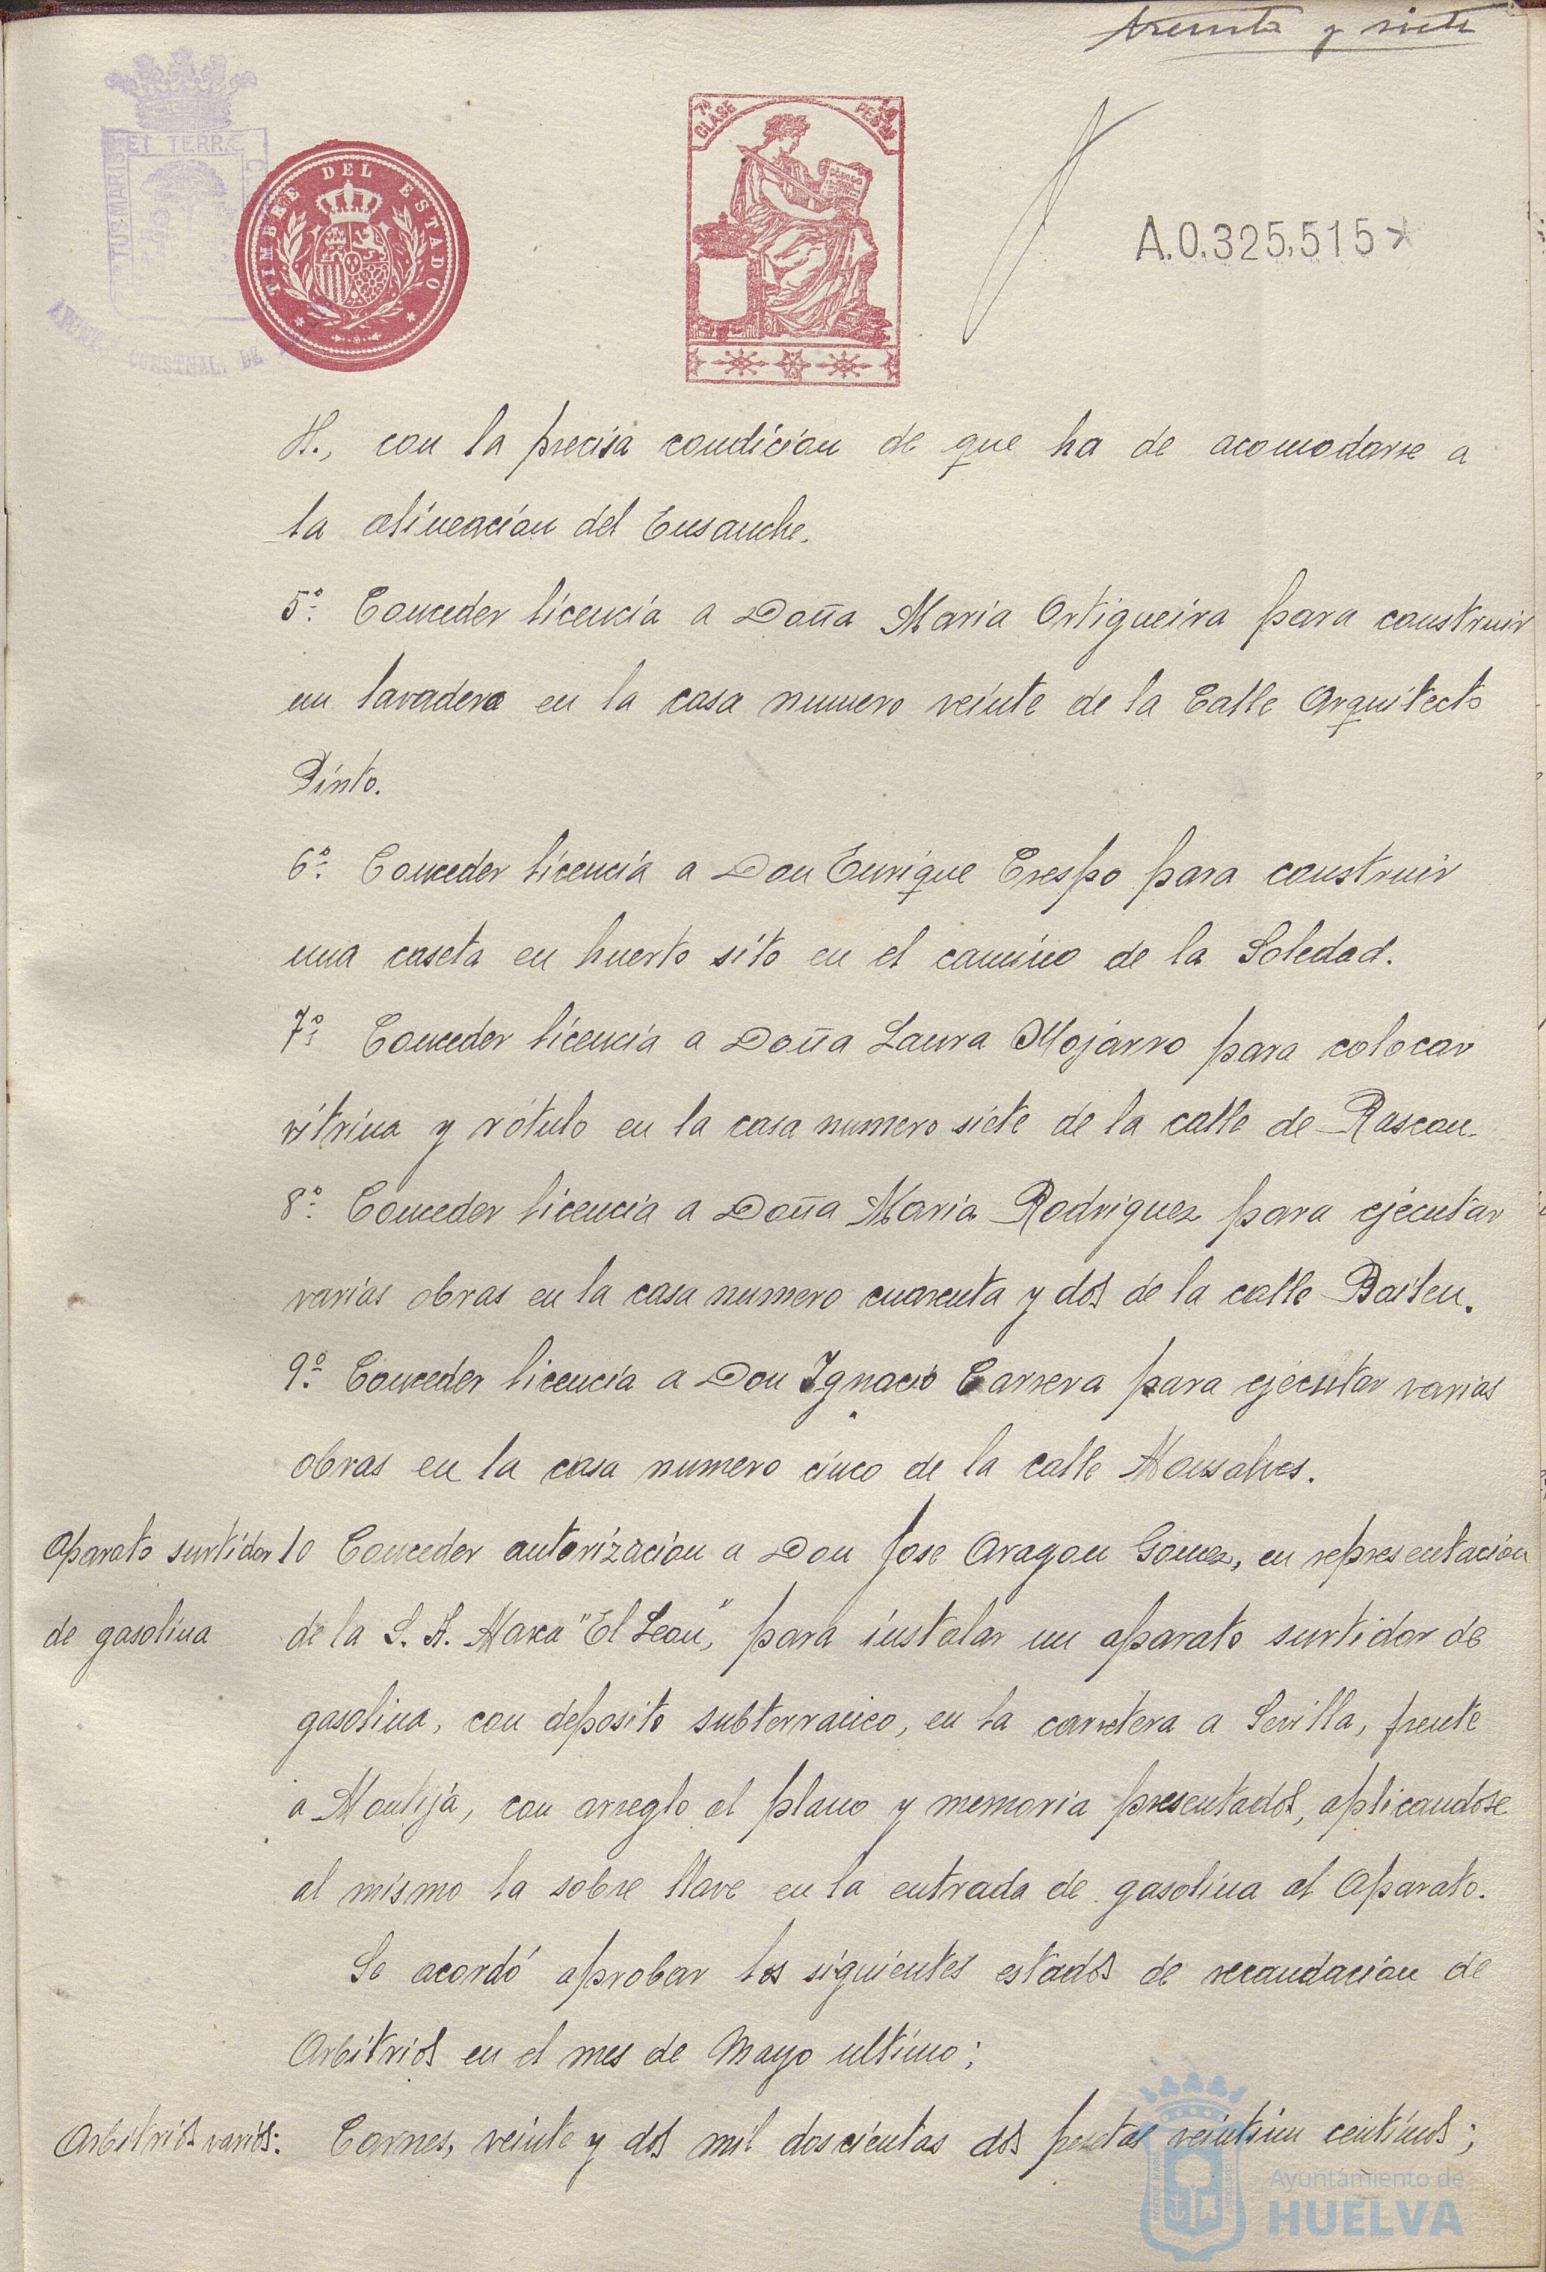 treinta y siete
7ª CLASE
PESETA
ET TERRÆ
TUS MARIS
TIMBRE DEL ESTADO
CONSTNAL. DE
A.0.325,515*
H., con la precisa condición de que ha de acomodarse a
la alineación del Ensanche.
5º: Conceder licencia a Doña Maria Ortigueira para construir
un lavadero en la casa numero veinte de la Calle Arquitecto
Pinto.
6º: Conceder licencia a Don Enrique Crespo para construir
una caseta en huerto sito en el camino de la Soledad.
7º: Conceder licencia a Doña Laura Mojarro para colocar
vitrina y rótulo en la casa numero siete de la calle de Rascon.
8º: Conceder licencia a Doña Maria Rodriguez para ejecutar
varias obras en la casa numero cuarenta y dos de la calle Bailen.
9º: Conceder licencia a Don Ignacio Carrera para ejecutar varias
obras en la casa numero cinco de la calle Monsalves.
Aparato surtidor 10 Conceder autorización a Don Jose Aragon Gomez, en representación
de gasolina de la S. A. Marca "El Leon", para instalar un aparato surtidor de
gasolina, con deposito subterraneo, en la carretera a Sevilla, frente
a Montija, con arreglo al plano y memoria presentados, aplicandose
al mismo la sobre llave en la entrada de gasolina al Aparato.
Se acordó aprobar los siguientes estados de recaudacion de
Arbitrios en el mes de Mayo ultimo;
Arbitrios varios: Carnes, veinte y dos mil doscientas dos pesetas veintiun centimos;
Ayuntamiento de
HUELVA